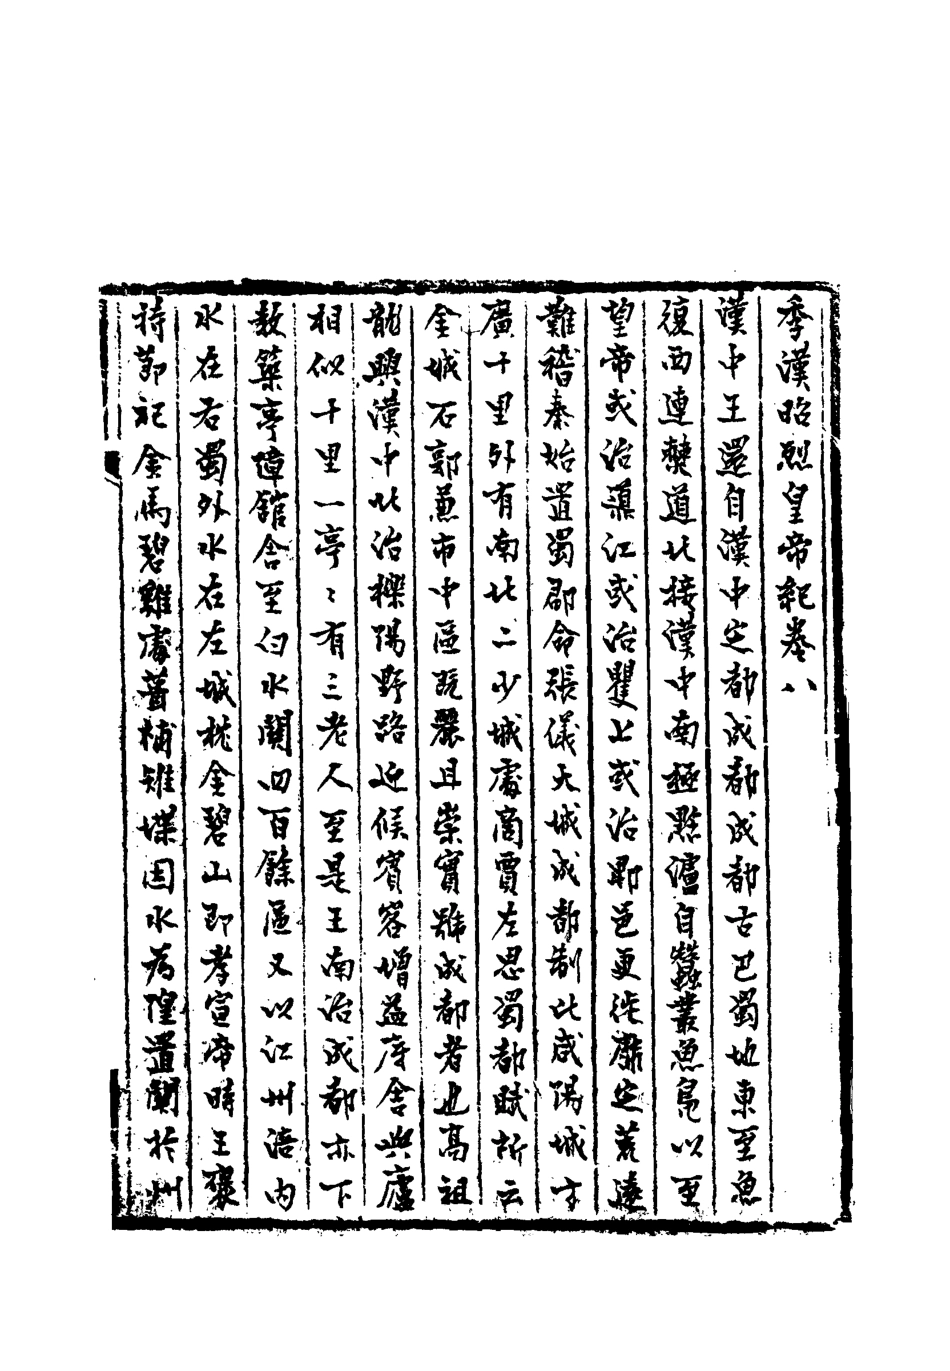 季漢昭烈皇帝紀卷八
漢中王還自漢中定都成都成都古巴蜀地東至魚
復西連僰道北接漢中南極黔瀘自蠶叢魚鳧以至
望帝或治瀘江或治瞿上或治郫邑更徙靡定荒遠
難稽秦始置蜀郡命張儀大城成都制比咸陽城方
廣十里外有南北二少城處商賈左思蜀都賦所云
金城石郭蒹市中區既麗且崇實號成都者也高祖
龍興漢中北治櫟陽野路迎候賓客增益序舍與廬
相似十里一亭〻有三老人至是王南治成都亦下
教築亭障館舍至白水關四百餘區又以江州涪內
水在右蜀外水在左城枕金碧山即孝宣帝時王褒
持節祀金馬碧雞處舊植雉堞因水為隍置關於州